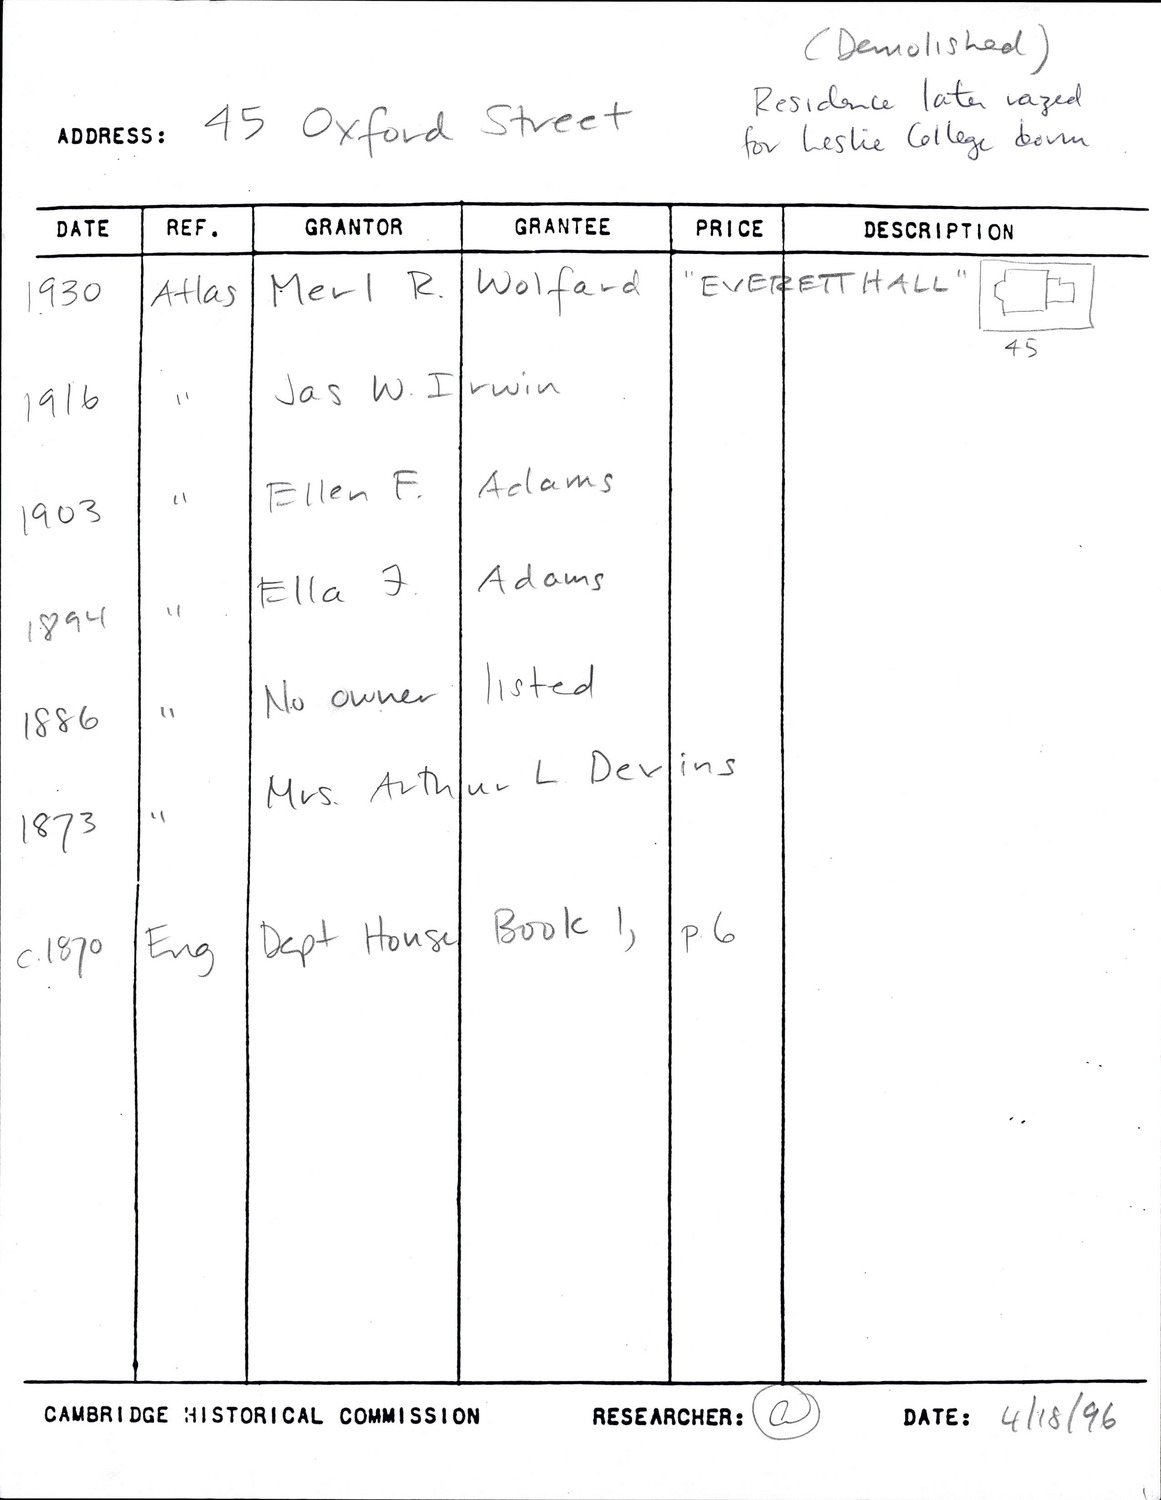 (Demolished)
Residence later razed
ADDRESS: 45 Oxford Street
for Leslie College dorm
DATE REF. GRANTOR GRANTEE PRICE DESCRIPTION
1930 Atlas Merl R. Wolfard "EVERETT HALL"
45
1916 " Jas W. Irwin
1903 " Ellen F. Adams
1894 " Ella F. Adams
1886 " No owner listed
1873 " Mrs. Arthur L. Devins
c.1870 Eng Dept House Book 1, p.6
CAMBRIDGE HISTORICAL COMMISSION RESEARCHER: DATE: 4/18/96